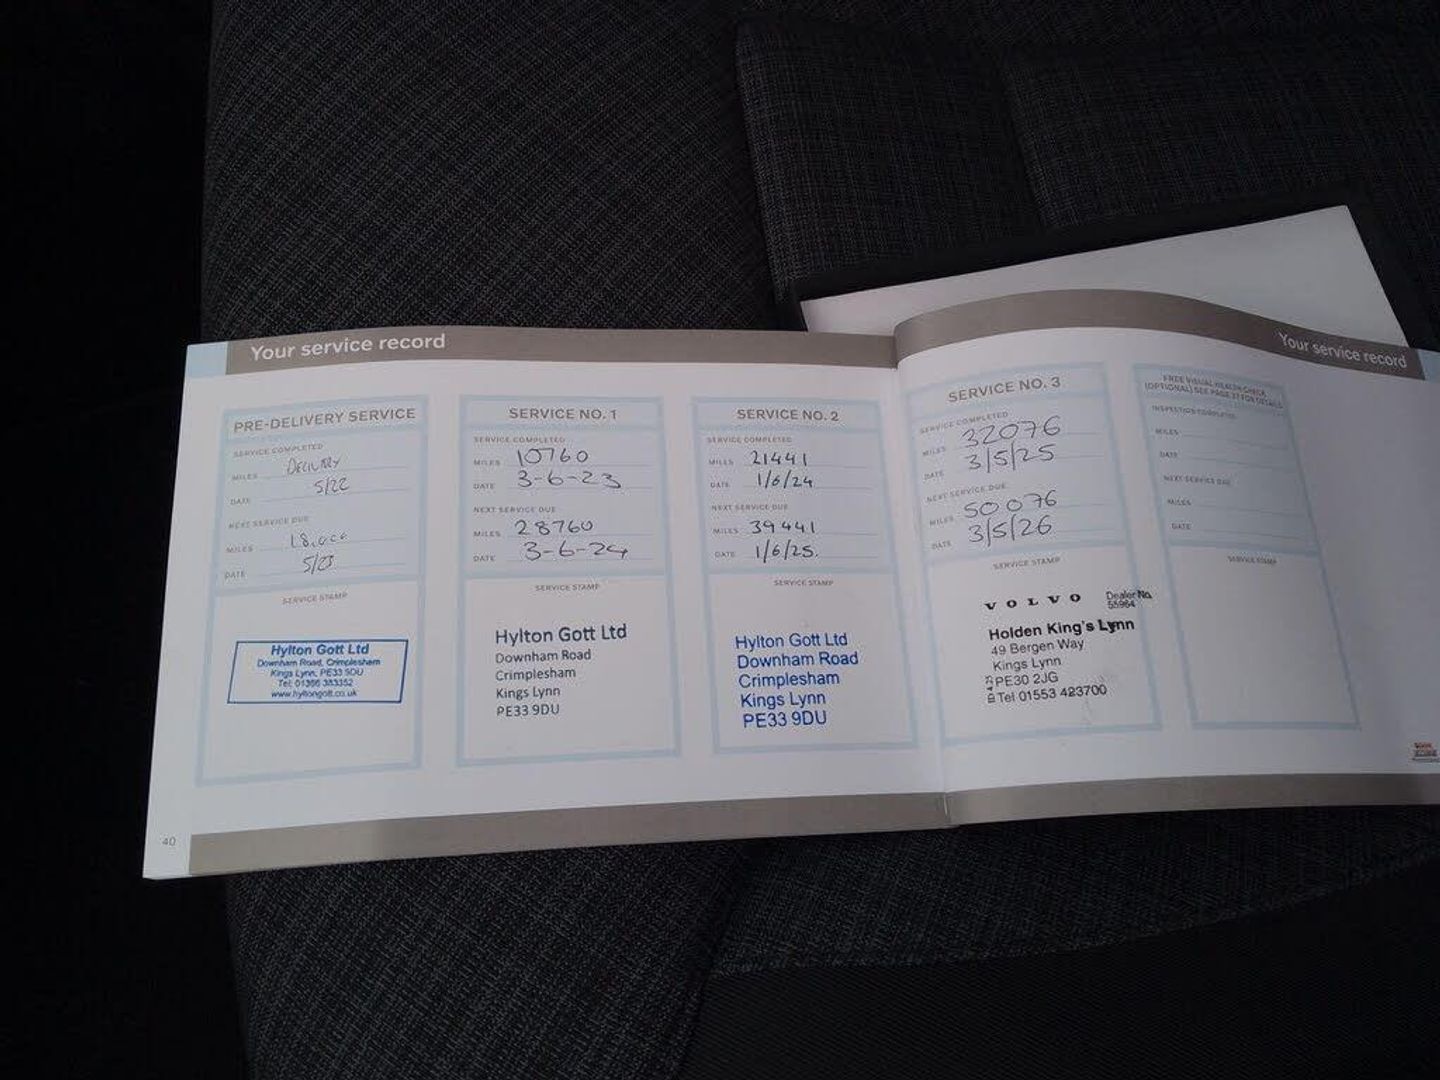 Your service record
PRE-DELIVERY SERVICE
SERVICE COMPLETED
MILES DELIVERY
DATE 5/22
NEXT SERVICE DUE
MILES 18,000
DATE 5/23
SERVICE STAMP
Hylton Gott Ltd
Downham Road, Crimplesham
Kings Lynn, PE33 9DU
Tel: 01366 383352
www.hyltongott.co.uk
40
SERVICE NO. 1
SERVICE COMPLETED
MILES 10760
DATE 3-6-23
NEXT SERVICE DUE
MILES 28760
DATE 3-6-24
SERVICE STAMP
Hylton Gott Ltd
Downham Road
Crimplesham
Kings Lynn
PE33 9DU
SERVICE NO. 2
SERVICE COMPLETED
MILES 21441
DATE 1/6/24
NEXT SERVICE DUE
MILES 39441
DATE 1/6/25.
SERVICE STAMP
Hylton Gott Ltd
Downham Road
Crimplesham
Kings Lynn
PE33 9DU
Your service record
SERVICE NO. 3
SERVICE COMPLETED
MILES 32076
DATE 3/5/25
NEXT SERVICE DUE
MILES 50076
DATE 3/5/26
SERVICE STAMP
VOLVO Dealer No.
55964
Holden King's Lynn
49 Bergen Way
Kings Lynn
PE30 2JG
Tel 01553 423700
FREE VISUAL HEALTH CHECK
(OPTIONAL) SEE PAGE 37 FOR DETAILS
INSPECTION COMPLETED
MILES
DATE
NEXT SERVICE DUE
MILES
DATE
SERVICE STAMP